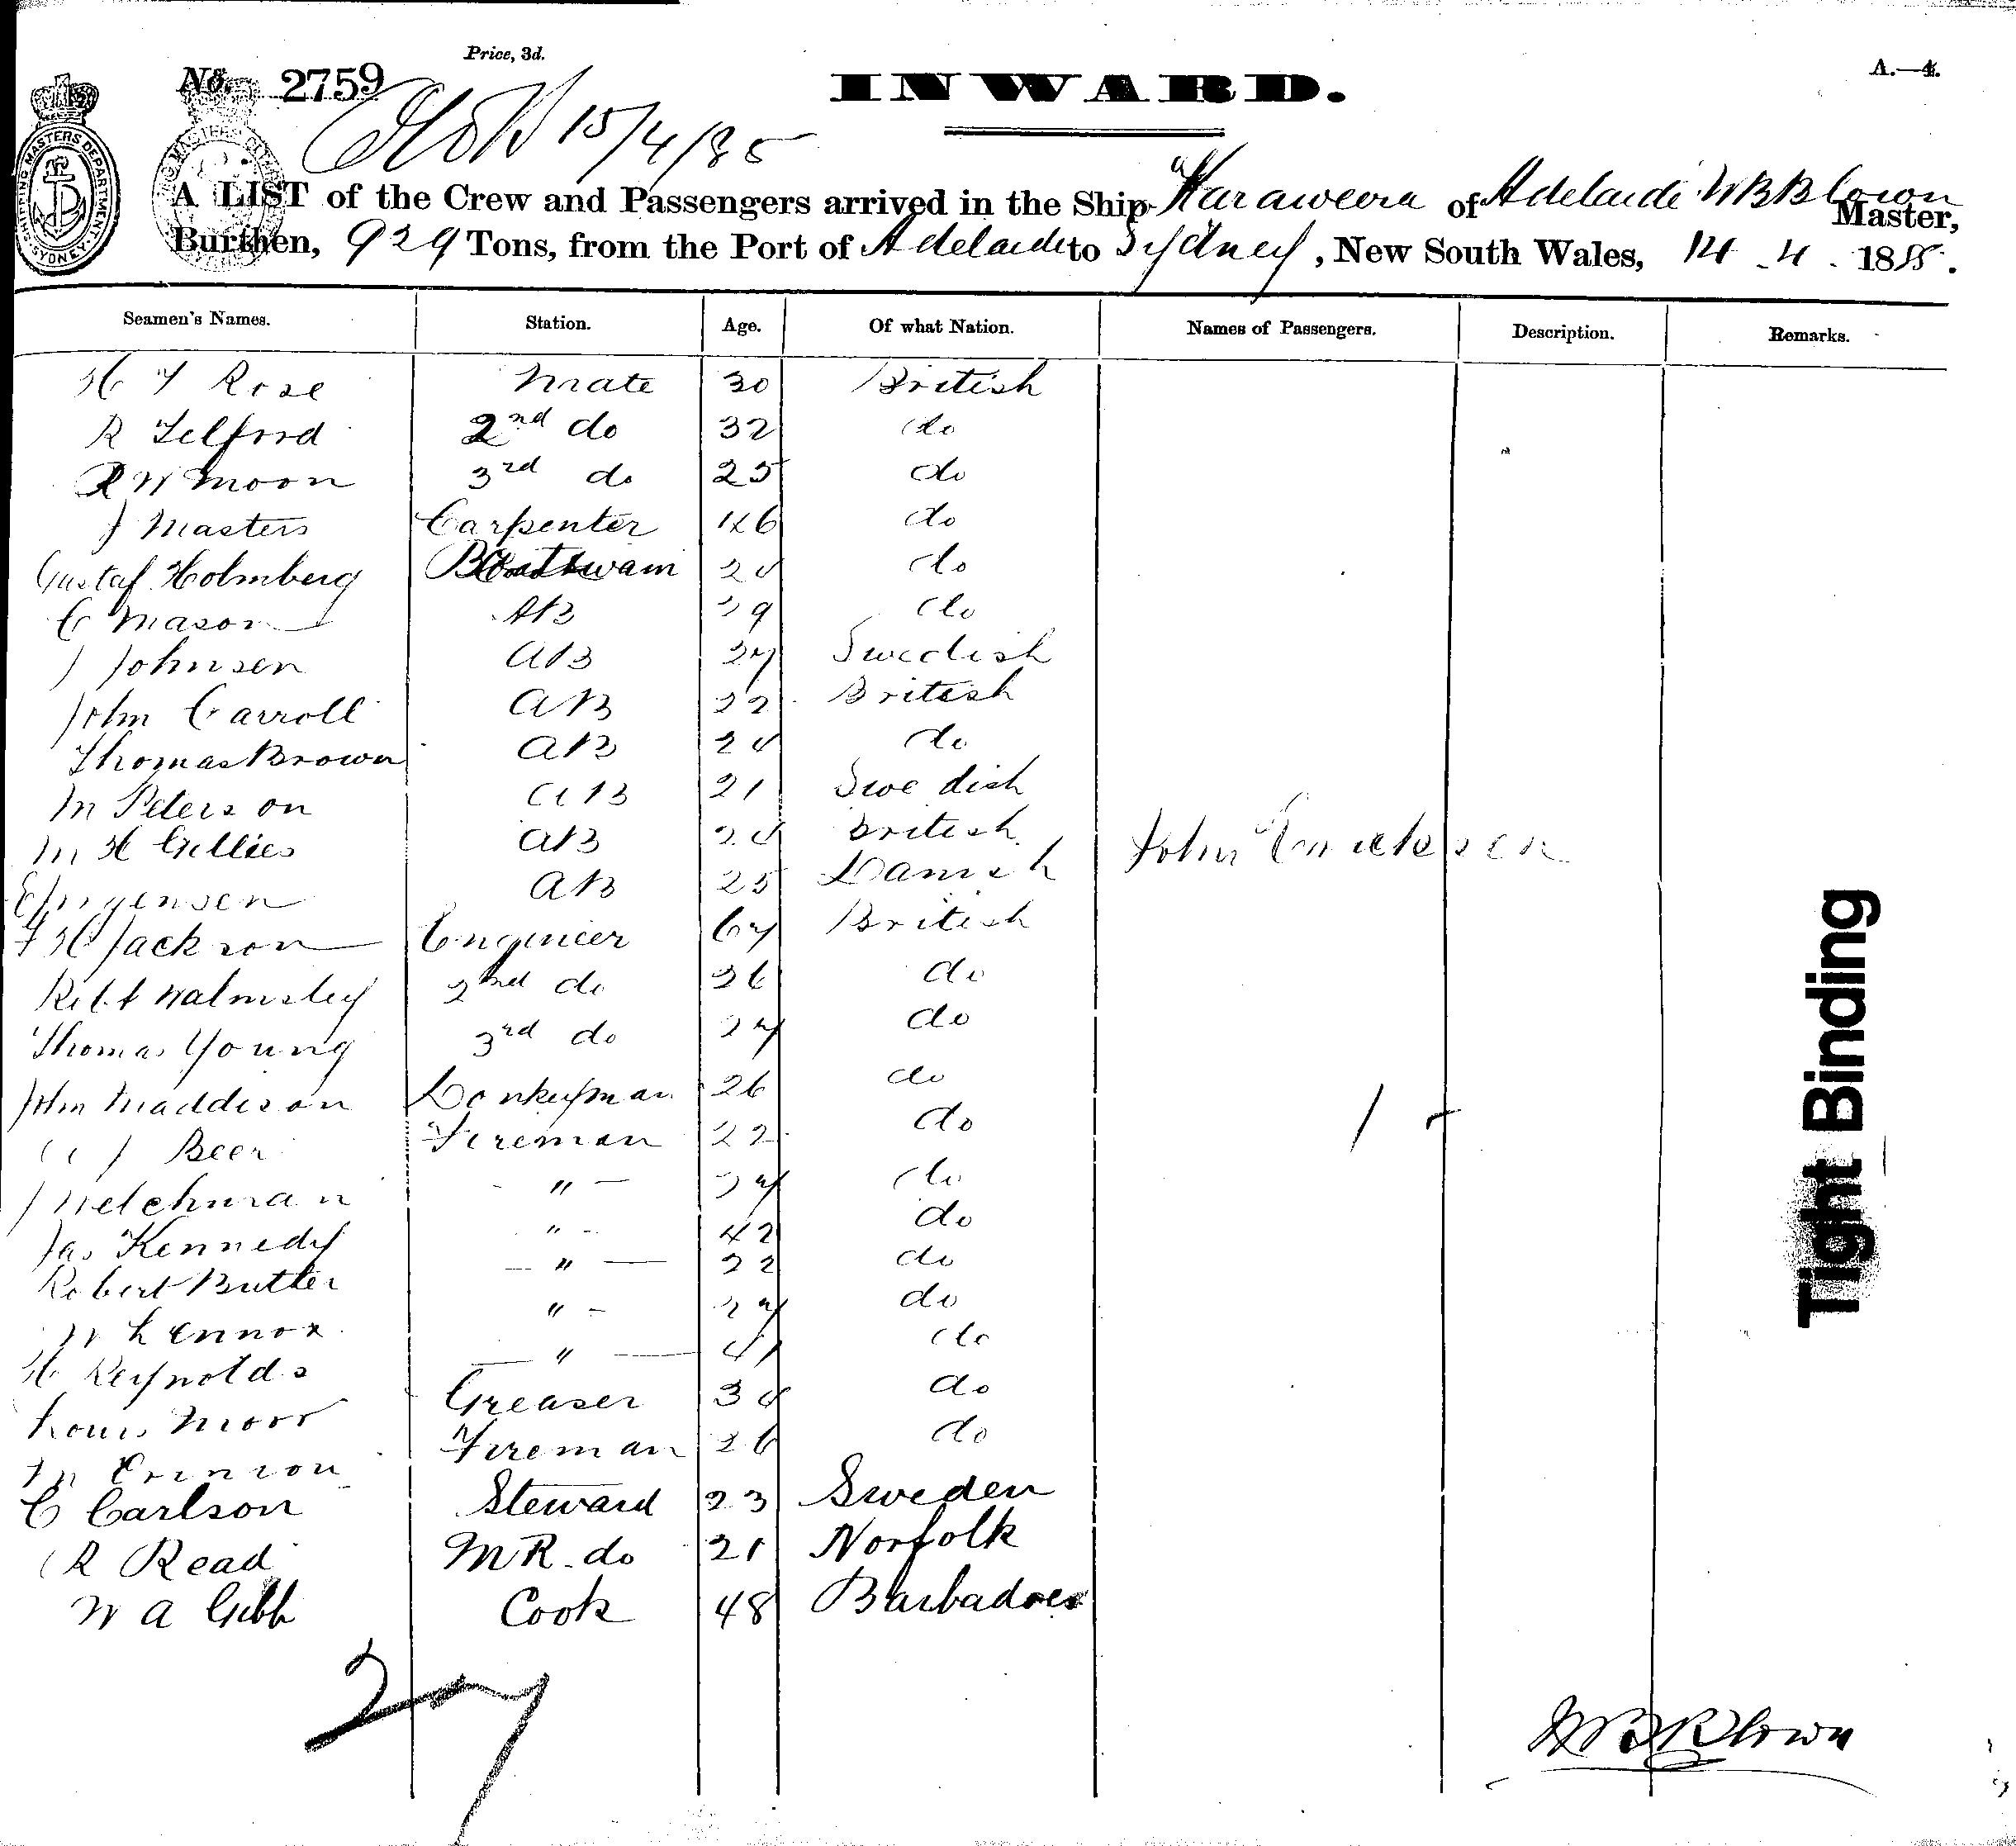 Price, 3d.
No. 2759
INWARD.
A.—4.
15/4/85
SHIPPING MASTERS DEPARTMENT SYDNEY
A LIST of the Crew and Passengers arrived in the Ship Karaweera of Adelaide W B Blown Master,
Burthen, 929 Tons, from the Port of Adelaide to Sydney, New South Wales, 14 . 4 . 1885.
Seamen's Names. Station. Age. Of what Nation. Names of Passengers. Description. Remarks.
H Y Rose Mate 30 British
R Telford 2nd do 32 do
R W Moon 3rd do 25 do
J Masters Carpenter 46 do
Gustaf Holmberg Boatswain 24 do
C Mason AB 39 do
J Johnsen AB 27 Swedish
John Carroll AB 22 British
Thomas Brown AB 24 do
M Peterson AB 21 Swedish
M H Gillies AB 24 British
E Jorgensen AB 25 Danish John
F H Jackson Engineer 67 British
Robt Walmsley 2nd do 36 do
Thomas Young 3rd do 27 do
John Maddison Donkeyman 26 do
J Beer Fireman 22 do
J Welchman " 37 do
Jas Kennedy " 42 do
Robert Butler " 22 do
W Lennox " 27 do
H Reynolds " 41 do
Louis Moor Greaser 34 do
Fireman 26 do
C Carlson Steward 23 Sweden
R Read M R. do 21 Norfolk
W A Gibb Cook 48 Barbadoes
27
W B Blown
Tight Binding